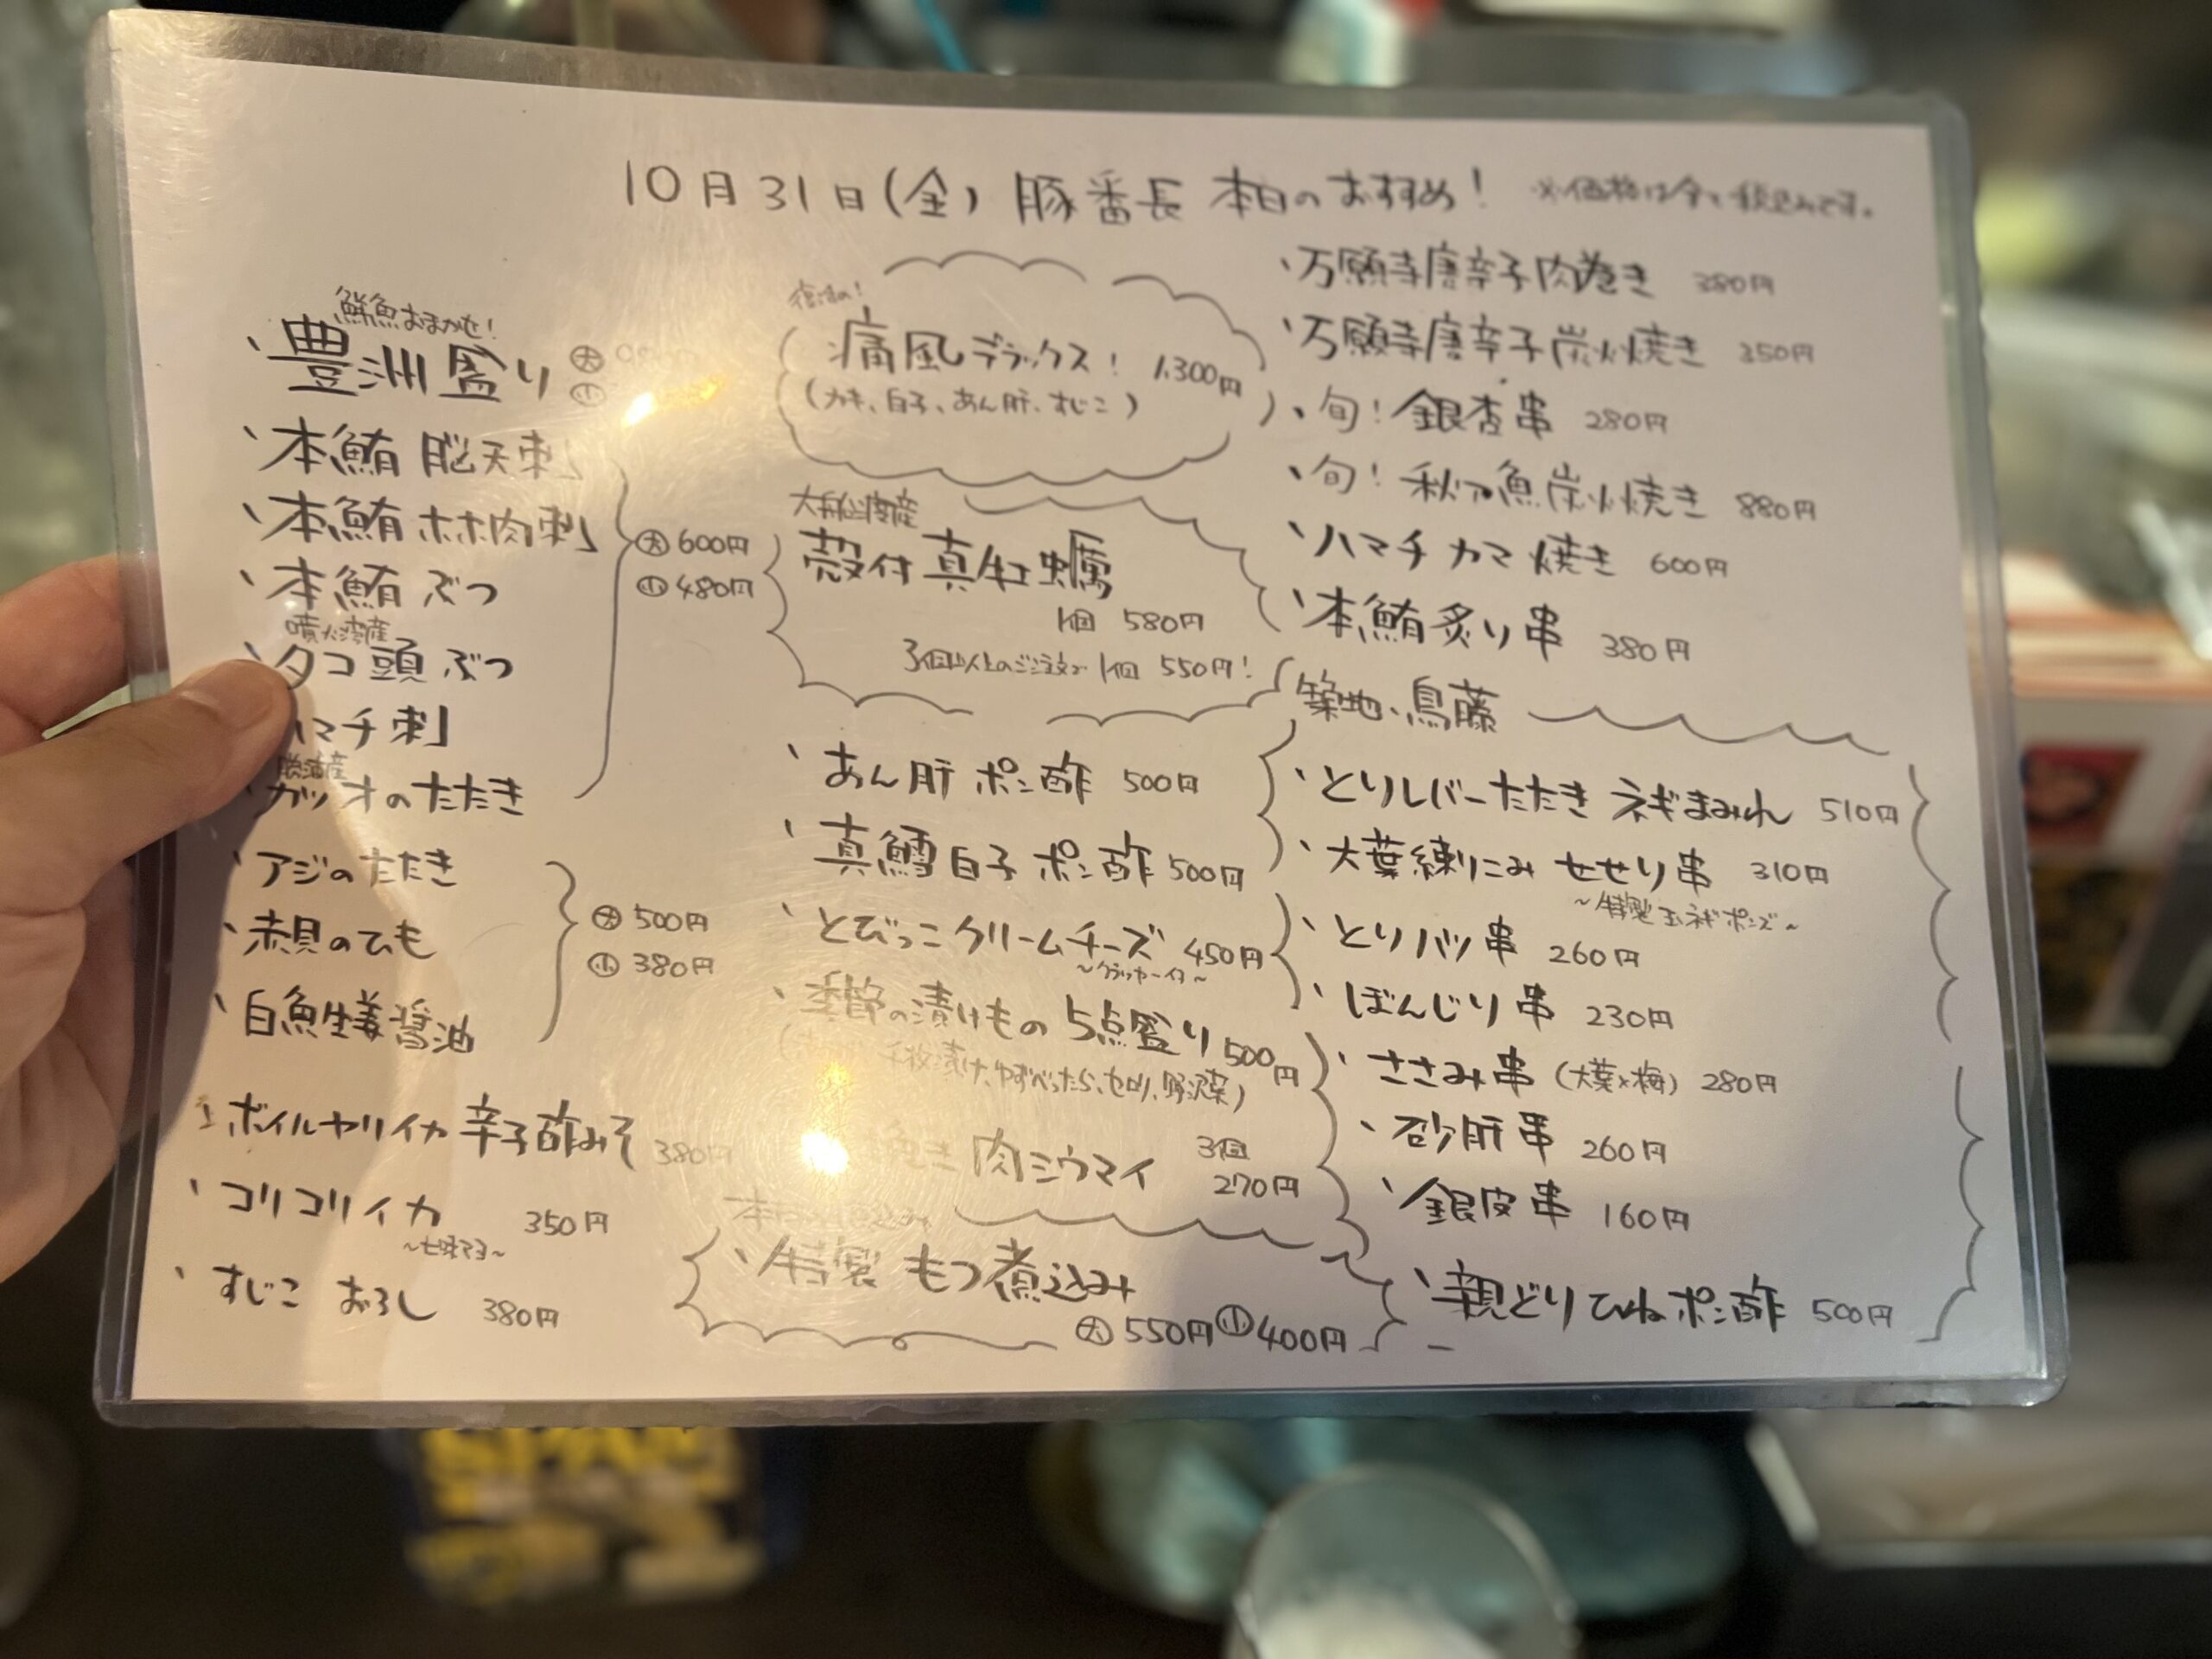 10月31日(金) 豚番長 本日のおすすめ! ※価格は全て税込みです。
鮮魚おまかせ!
、豊洲盛り 大
小
、本鮪 脳天刺
、本鮪 ホホ肉刺
、本鮪 ぶつ
噴火湾産
、タコ頭 ぶつ
ハマチ刺
勝浦産
カツオのたたき
大 600円
小 480円
、アジのたたき
、赤貝のひも
、白魚生姜醤油
大 500円
小 380円
、ボイルヤリイカ 辛子酢みそ 380円
、コリコリイカ 350円
~七味マヨ~
、すじこ おろし 380円
復活の!
痛風デラックス! 1,300円
(カキ、白子、あん肝、すじこ)
大船渡産
殻付真牡蠣
1個 580円
3個以上のご注文で 1個 550円!
、あん肝 ポン酢 500円
、真鱈白子 ポン酢 500円
、とびっこクリームチーズ 450円
~クラッカー付~
、季節の漬けもの 5点盛り 500円
千枚漬け、ゆずべったら、セロリ、野沢菜)
挽き 肉シウマイ 3個
270円
、特製 もつ煮込み
大 550円 小 400円
、万願寺唐辛子肉巻き 380円
、万願寺唐辛子炭火焼き 350円
、旬! 銀杏串 280円
、旬! 秋刀魚炭火焼き 880円
、ハマチ カマ 焼き 600円
、本鮪炙り串 380円
築地、鳥藤
、とりレバーたたき ネギまみれ 510円
、大葉練りこみ せせり串 310円
~特製玉ネギポンズ~
、とりハツ串 260円
、ぼんじり串 230円
、ささみ串 (大葉×梅) 280円
、砂肝串 260円
、銀皮串 160円
、親どりひねポン酢 500円